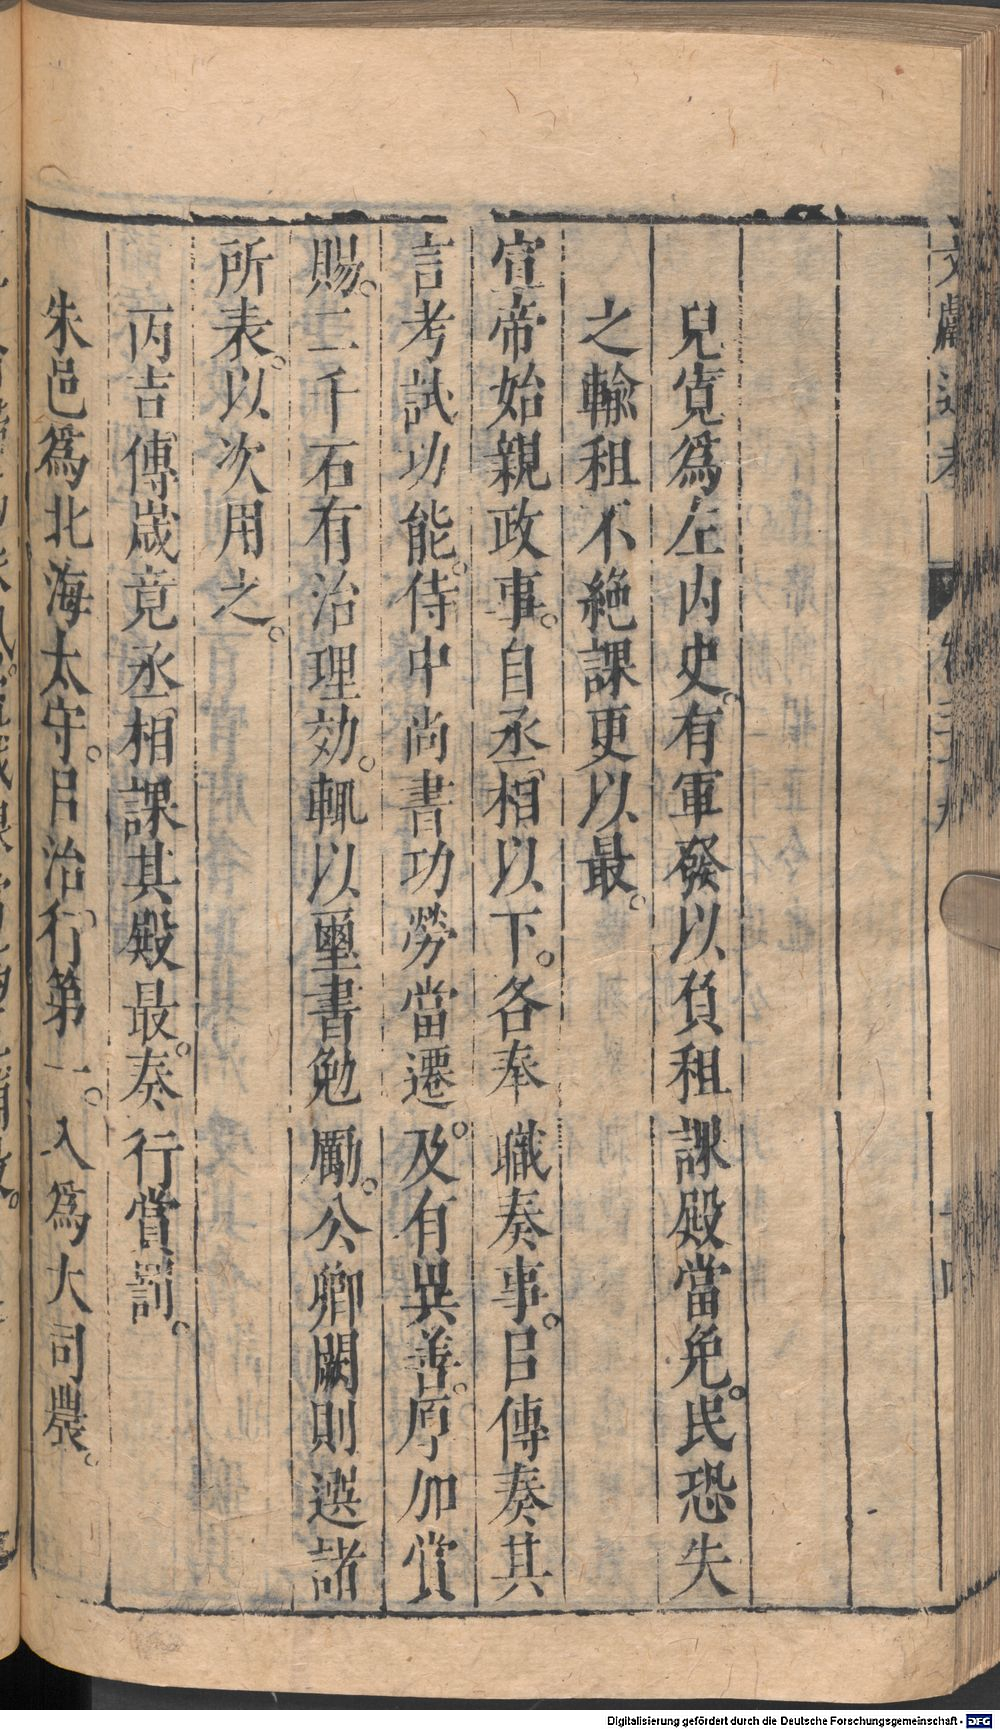 兒寬爲左內史。有軍發以負租課殿當免。民恐失
之輸租不絕課更以最。
宣帝始親政事。自丞相以下。各奉職奏事。㠯傳奏其
言考試功能。侍中尚書功勞當遷。及有異善。厚加賞
賜。二千石有治理効。輒以璽書勉勵。公卿闕則選諸
所表。以次用之。
丙吉傳歲竟丞相課其殿最。奏行賞罰。
朱邑爲北海太守。㠯治行第一。入爲大司農。
Digitalisierung gefördert durch die Deutsche Forschungsgemeinschaft - DFG